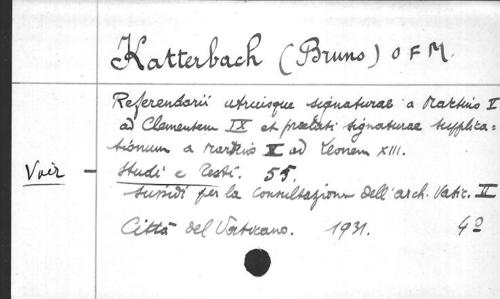 Katterbach (Bruno) O F M.
Referendarii utriusque signaturae a Martino V
ad Clementem IX et praelati signaturae supplica=
tionum a Martino V ad Leonem XIII.
Voir – Studi e Testi. 55.
Sussidi per la consultazione dell'arch. Vatic. II
Città del Vaticano. 1931. 4º